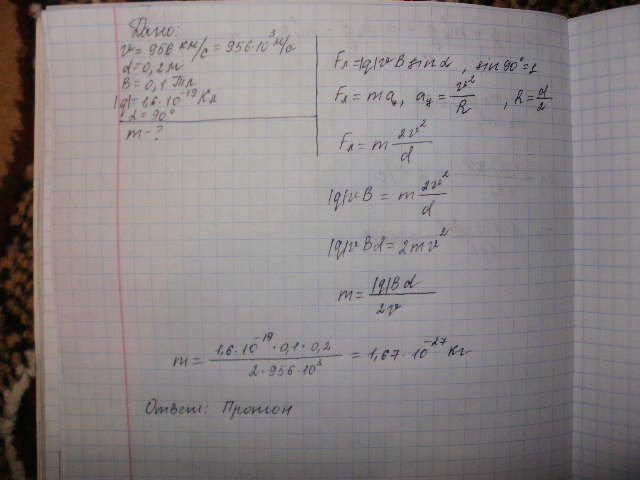 Дано:
v = 956 км/с = 956·10³ м/с
d = 0,2 м
B = 0,1 Тл
|q| = 1,6·10⁻¹⁹ Кл
α = 90°
m - ?
Fл = |q|vB sin α, sin 90° = 1
Fл = m aц, aц = v²/R, R = d/2
Fл = m 2v²/d
|q|vB = m 2v²/d
|q|vBd = 2mv²
m = |q|Bd/2v
m = 1,6·10⁻¹⁹·0,1·0,2/2·956·10³ = 1,67·10⁻²⁷ кг
Ответ: Протон